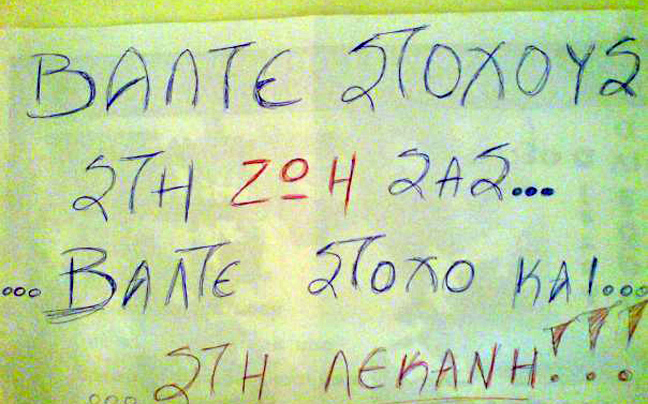 ΒΑΛΤΕ ΣΤΟΧΟΥΣ
ΣΤΗ ΖΩΗ ΣΑΣ...
...ΒΑΛΤΕ ΣΤΟΧΟ ΚΑΙ...
...ΣΤΗ ΛΕΚΑΝΗ!!!